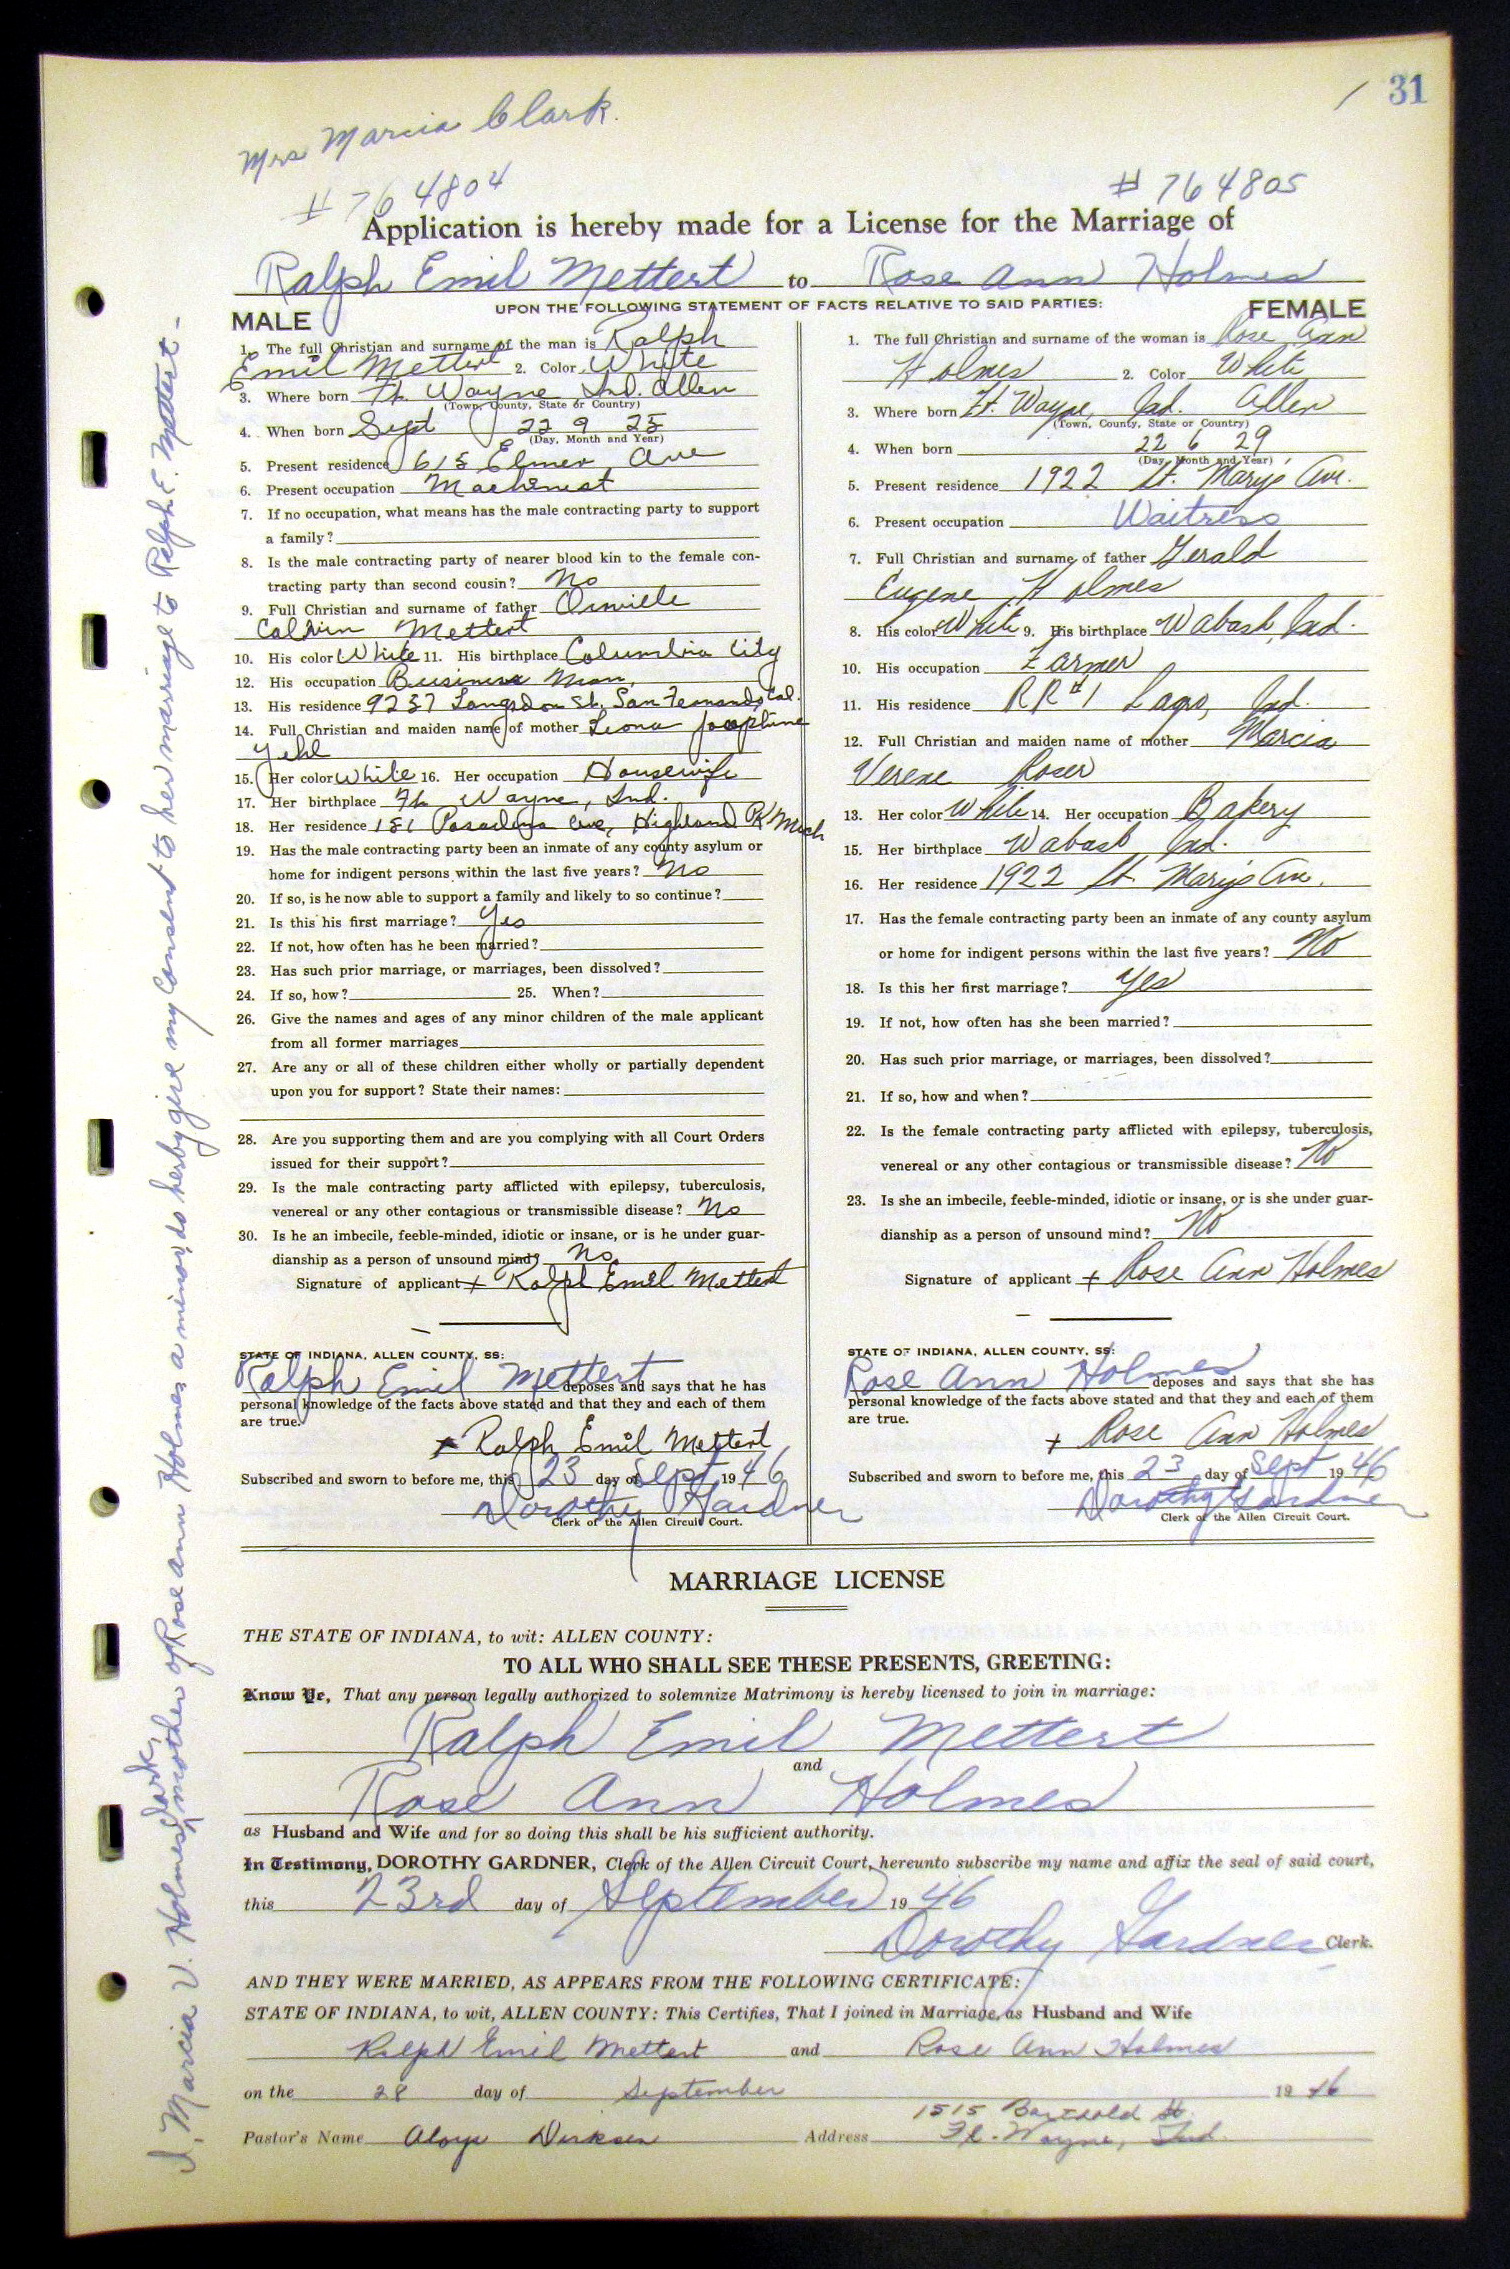 31
Mrs Marcia Clark.
# 764804
# 764805
Application is hereby made for a License for the Marriage of
Ralph Emil Mettert to Rose Ann Holmes
UPON THE FOLLOWING STATEMENT OF FACTS RELATIVE TO SAID PARTIES:
MALE
1. The full Christian and surname of the man is Ralph
Emil Mettert 2. Color White
3. Where born Ft. Wayne Ind. Allen
(Town, County, State or Country)
4. When born Sept 22 9 25
(Day, Month and Year)
5. Present residence 615 Elmer Ave
6. Present occupation Machinist
7. If no occupation, what means has the male contracting party to support
a family?
8. Is the male contracting party of nearer blood kin to the female con-
tracting party than second cousin? No
9. Full Christian and surname of father Orville
Calvin Mettert
10. His color White 11. His birthplace Columbia City
12. His occupation Business Man,
13. His residence 9237 Langdon St. San Fernando, Cal.
14. Full Christian and maiden name of mother Leona Josephine
Yehl
15. Her color White 16. Her occupation Housewife
17. Her birthplace Ft. Wayne, Ind.
18. Her residence 181 Pasadena Ave, Highland Pk Mich
19. Has the male contracting party been an inmate of any county asylum or
home for indigent persons within the last five years? No
20. If so, is he now able to support a family and likely to so continue?
21. Is this his first marriage? Yes
22. If not, how often has he been married?
23. Has such prior marriage, or marriages, been dissolved?
24. If so, how? 25. When?
26. Give the names and ages of any minor children of the male applicant
from all former marriages
27. Are any or all of these children either wholly or partially dependent
upon you for support? State their names:
28. Are you supporting them and are you complying with all Court Orders
issued for their support?
29. Is the male contracting party afflicted with epilepsy, tuberculosis,
venereal or any other contagious or transmissible disease? No
30. Is he an imbecile, feeble-minded, idiotic or insane, or is he under guar-
dianship as a person of unsound mind? No
Signature of applicant x Ralph Emil Mettert
STATE OF INDIANA, ALLEN COUNTY, SS:
Ralph Emil Mettert deposes and says that he has
personal knowledge of the facts above stated and that they and each of them
are true.
x Ralph Emil Mettert
Subscribed and sworn to before me, this 23 day of Sept 1946
Dorothy Gardner
Clerk of the Allen Circuit Court.
FEMALE
1. The full Christian and surname of the woman is Rose Ann
Holmes 2. Color White
3. Where born Ft. Wayne, Ind. Allen
(Town, County, State or Country)
4. When born 22 6 29
(Day, Month and Year)
5. Present residence 1922 St. Mary's Ave.
6. Present occupation Waitress
7. Full Christian and surname of father Gerald
Eugene Holmes
8. His color White 9. His birthplace Wabash, Ind.
10. His occupation Farmer
11. His residence RR #1 Lagro, Ind.
12. Full Christian and maiden name of mother Marcia
Verene Roser
13. Her color White 14. Her occupation Bakery
15. Her birthplace Wabash Ind.
16. Her residence 1922 St. Mary's Ave.
17. Has the female contracting party been an inmate of any county asylum
or home for indigent persons within the last five years? No
18. Is this her first marriage? Yes
19. If not, how often has she been married?
20. Has such prior marriage, or marriages, been dissolved?
21. If so, how and when?
22. Is the female contracting party afflicted with epilepsy, tuberculosis,
venereal or any other contagious or transmissible disease? No
23. Is she an imbecile, feeble-minded, idiotic or insane, or is she under guar-
dianship as a person of unsound mind? No
Signature of applicant x Rose Ann Holmes
STATE OF INDIANA, ALLEN COUNTY, SS:
Rose Ann Holmes deposes and says that she has
personal knowledge of the facts above stated and that they and each of them
are true.
x Rose Ann Holmes
Subscribed and sworn to before me, this 23 day of Sept 1946
Dorothy Gardner
Clerk of the Allen Circuit Court.
MARRIAGE LICENSE
THE STATE OF INDIANA, to wit: ALLEN COUNTY:
TO ALL WHO SHALL SEE THESE PRESENTS, GREETING:
Know Ye, That any person legally authorized to solemnize Matrimony is hereby licensed to join in marriage:
Ralph Emil Mettert
and
Rose Ann Holmes
as Husband and Wife and for so doing this shall be his sufficient authority.
In Testimony, DOROTHY GARDNER, Clerk of the Allen Circuit Court, hereunto subscribe my name and affix the seal of said court,
this 23rd day of September 1946
Dorothy Gardner Clerk.
AND THEY WERE MARRIED, AS APPEARS FROM THE FOLLOWING CERTIFICATE:
STATE OF INDIANA, to wit, ALLEN COUNTY: This Certifies, That I joined in Marriage, as Husband and Wife
Ralph Emil Mettert and Rose Ann Holmes
on the 28 day of September 1946
1515 Barthold St.
Pastor's Name Aloys Dirksen Address Ft. Wayne, Ind.
I, Marcia V. Holmes Clark, mother of Rose Ann Holmes a minor, do herby give my consent to her marriage to Ralph E. Mettert -